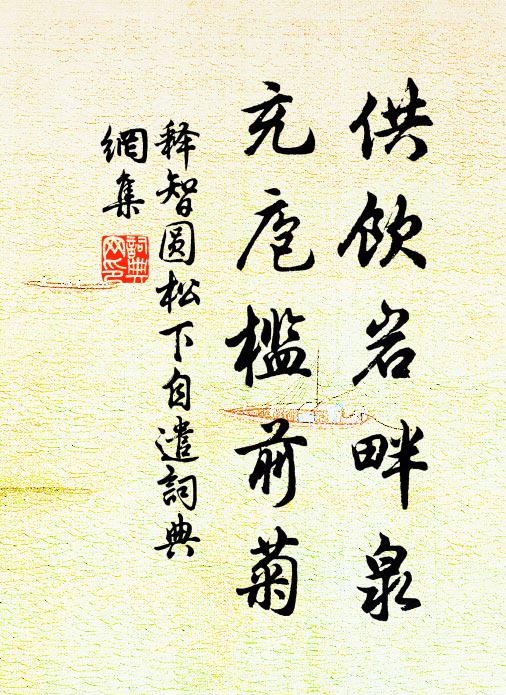 供饮岩畔泉
充庖槛前菊
释智圆松下自遣詞典
網集
詞典
网印